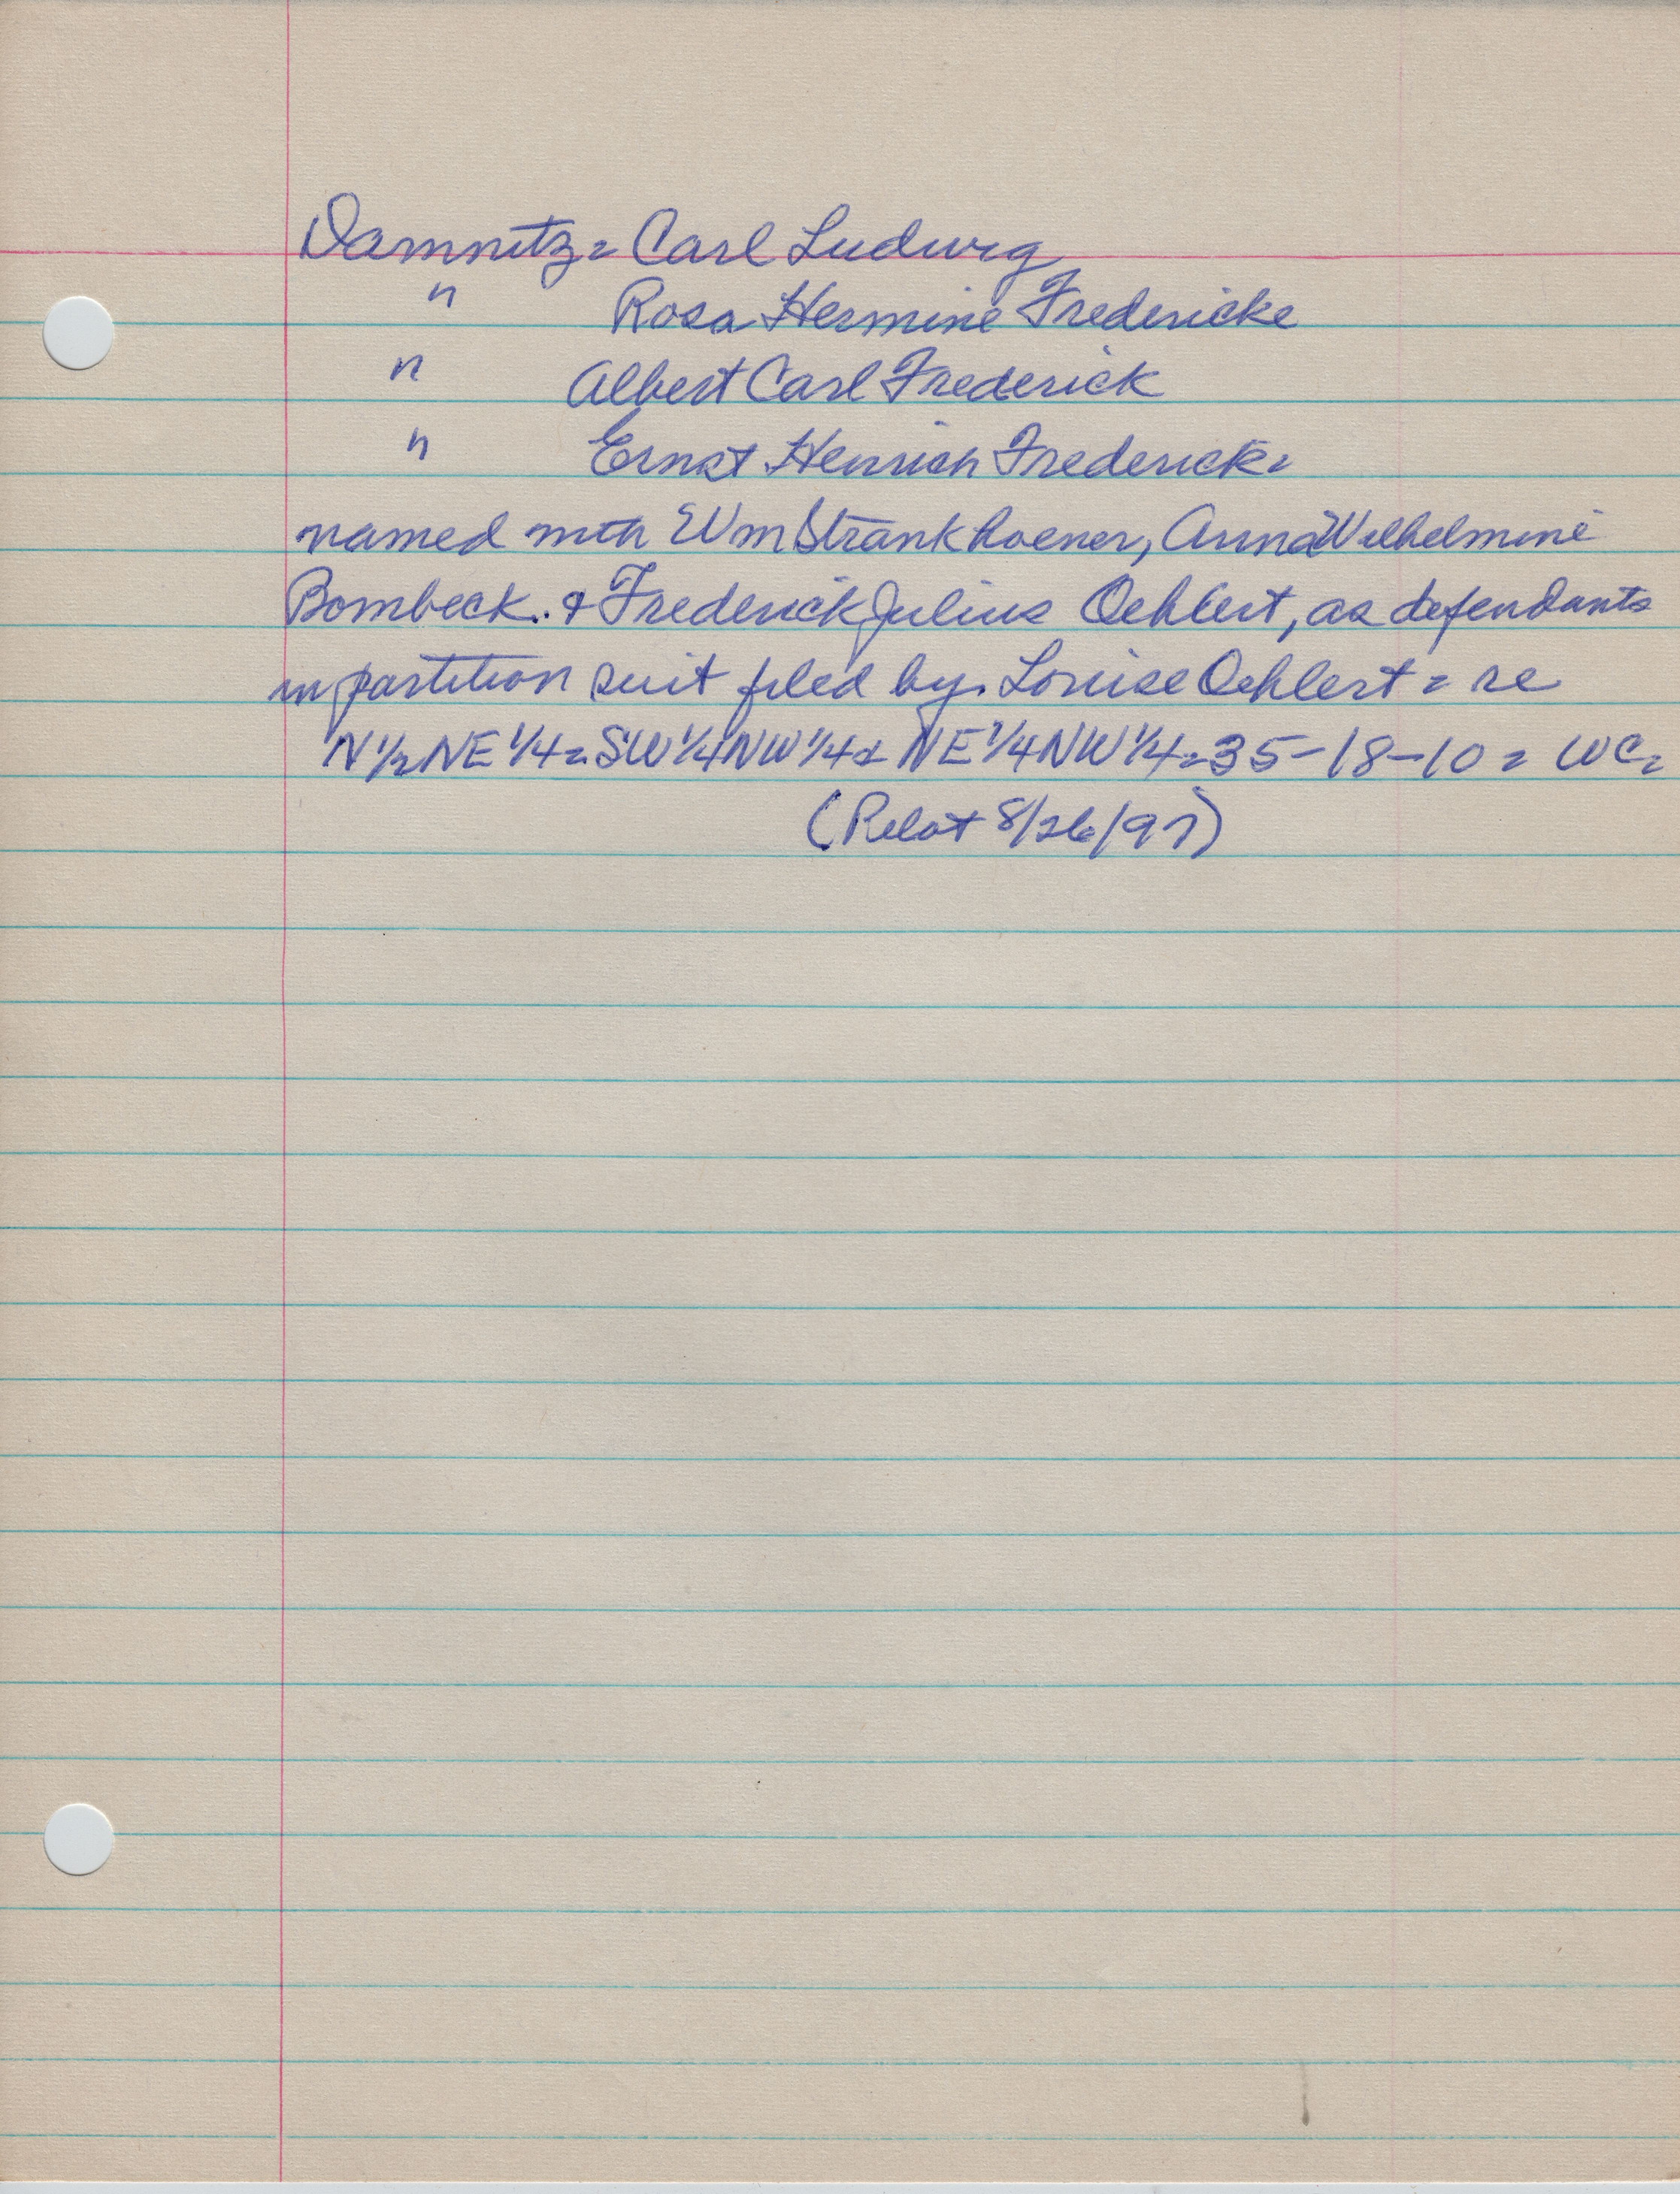 Damnitz = Carl Ludwig
" Rosa Hermine Fredericke
" Albert Carl Frederick
" Ernst Henrich Frederick =
named with Wm Strankhoener, Anna Wilhelmine
Bombeck. & Frederick Julius Oehlert, as defendants
in partition suit filed by. Louise Oehlert = re
N 1/2 NE 1/4 = SW 1/4 NW 1/4 & NE 1/4 NW 1/4 = 35-18-10 = WC =
(Relat 8/26/97)